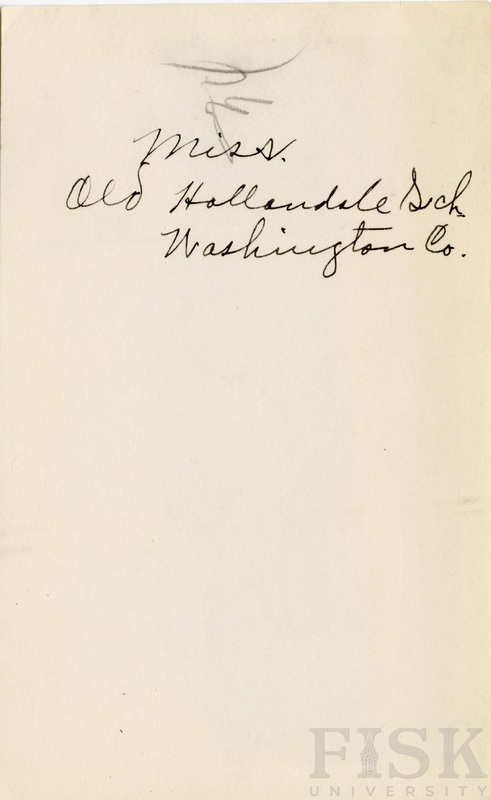 Miss.
Old Hollandale Sch.
Washington Co.
FISK
UNIVERSITY